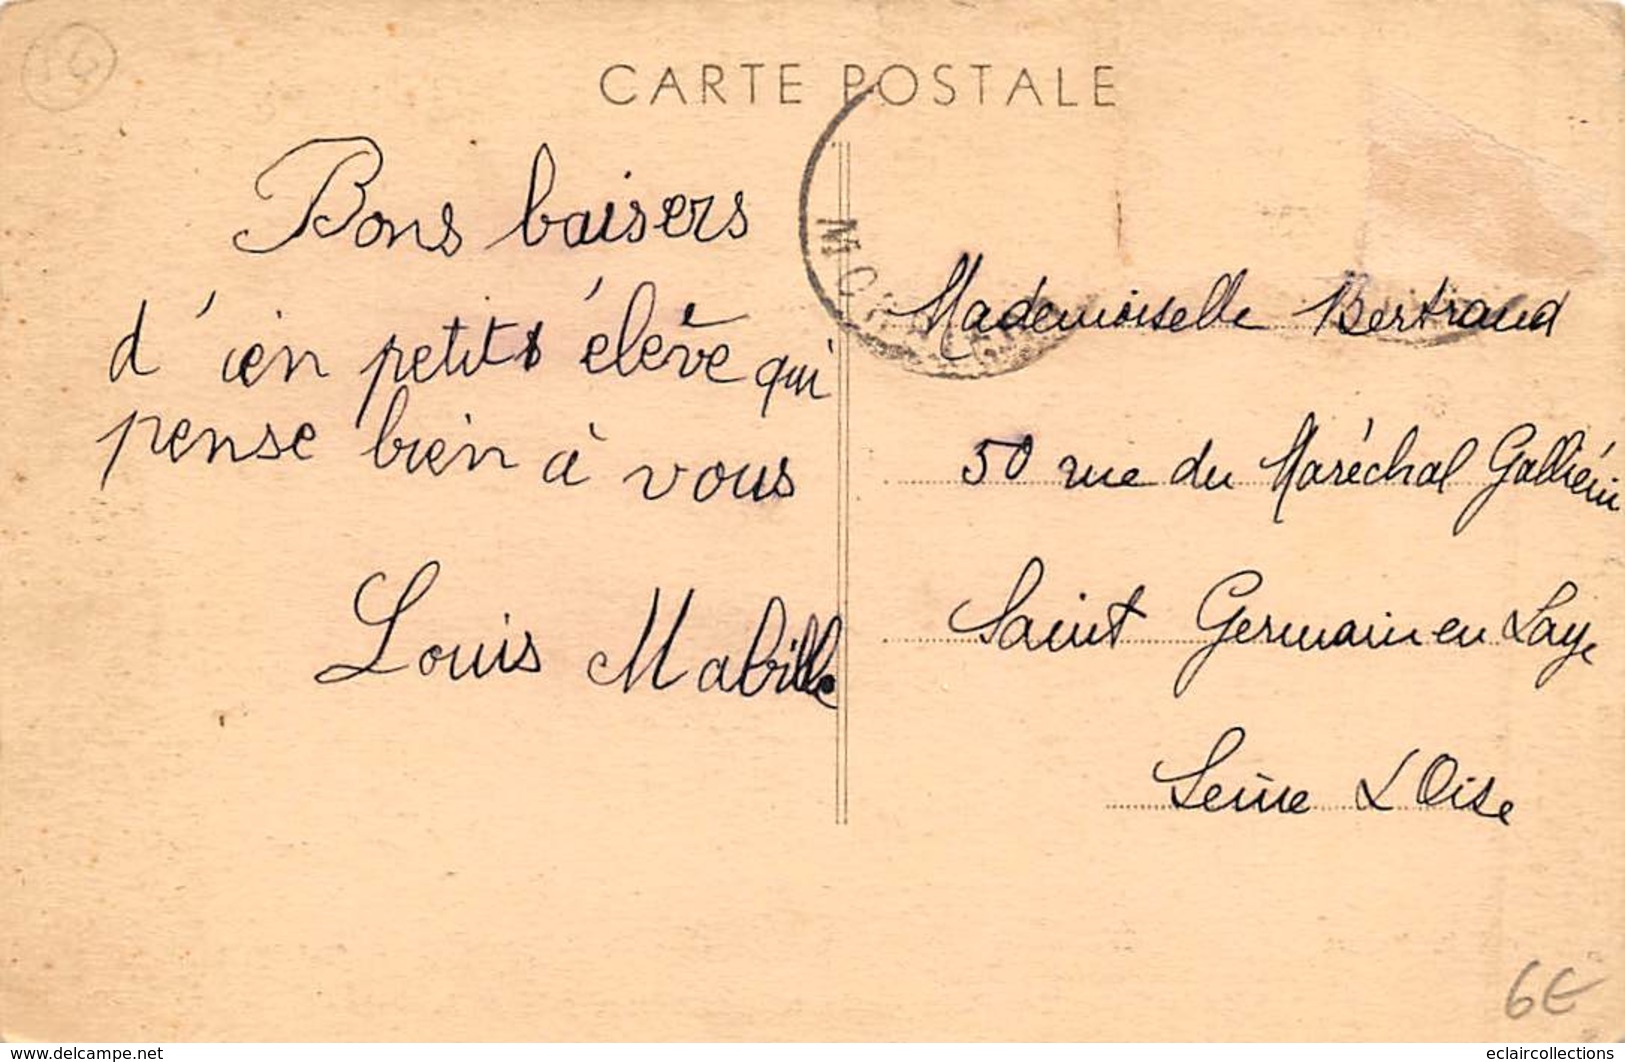 CARTE POSTALE
Bons baisers
d'un petit élève qui
pense bien à vous
Louis Mabille
Mademoiselle Bertrand
50 rue du Maréchal Galliéni
Saint Germain en Laye
Seine & Oise
6€
www.delcampe.net
eclaircollections